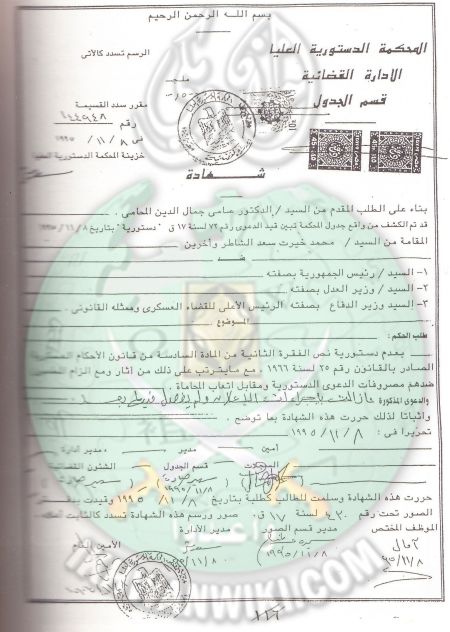 بسم الله الرحمن الرحيم
المحكمة الدستورية العليا
الادارة القضائية
قسم الجدول
الرسم تسدد كالآتى
مليم
مقرر سدد القسيمة
رقم ١٤٤٩٤٨
فى ٨ / ١١ / ١٩٩٥
خزينة المحكمة الدستورية العليا
شهادة
بناء على الطلب المقدم من السيد / الدكتور عباس جمال الدين المحامى .
قد تم الكشف من واقع جدول المحكمة تبين قيد الدعوى رقم ٧٢ لسنة ١٧ ق " دستورية " بتاريخ ٨ / ١١ / ١٩٩٥
المقامة من السيد / محمد خيرت سعد الشاطر وآخرين
ضد
١ - السيد / رئيس الجمهورية بصفته
٢ - السيد / وزير العدل بصفته
٣ - السيد وزير الدفاع بصفته الرئيس الأعلى للقضاء العسكرى وممثله القانونى .
الموضوع
طلب الحكم :
بعدم دستورية نص الفقرة الثانية من المادة السادسة من قانون الأحكام العسكرية
الصادر بالقانون رقم ٢٥ لسنة ١٩٦٦ . مع ما يترتب على ذلك من آثار ومع الزام
ضدهم مصروفات الدعوى الدستورية ومقابل اتعاب المحاماة .
والدعوى المذكورة مازالت بإجراءات الإعلان ولم يفصل فيها بعد
واثباتا لذلك حررت هذه الشهادة بما توضح .
تحريرا فى : ٨ / ١١ / ١٩٩٥
أمين مدير مدير ادارة
السجلات قسم الجدول الشئون القضائية
١٩٩٥/١١/٨
حررت هذه الشهادة وسلمت للطالب كطلبه بتاريخ ٨ / ١١ / ١٩٩٥ وقيدت بدفتر
الصور تحت رقم ٤٣٠ لسنة ١٧ ق . صور ورسم هذه الشهادة تسدد كالثابت أعلاه .
الموظف المختص مدير قسم الصور مدير الأدارة الأمين العام
آمال
٩٥/١١/٨
١٩٩٥/١١/٨
IKHWANWIKI.COM